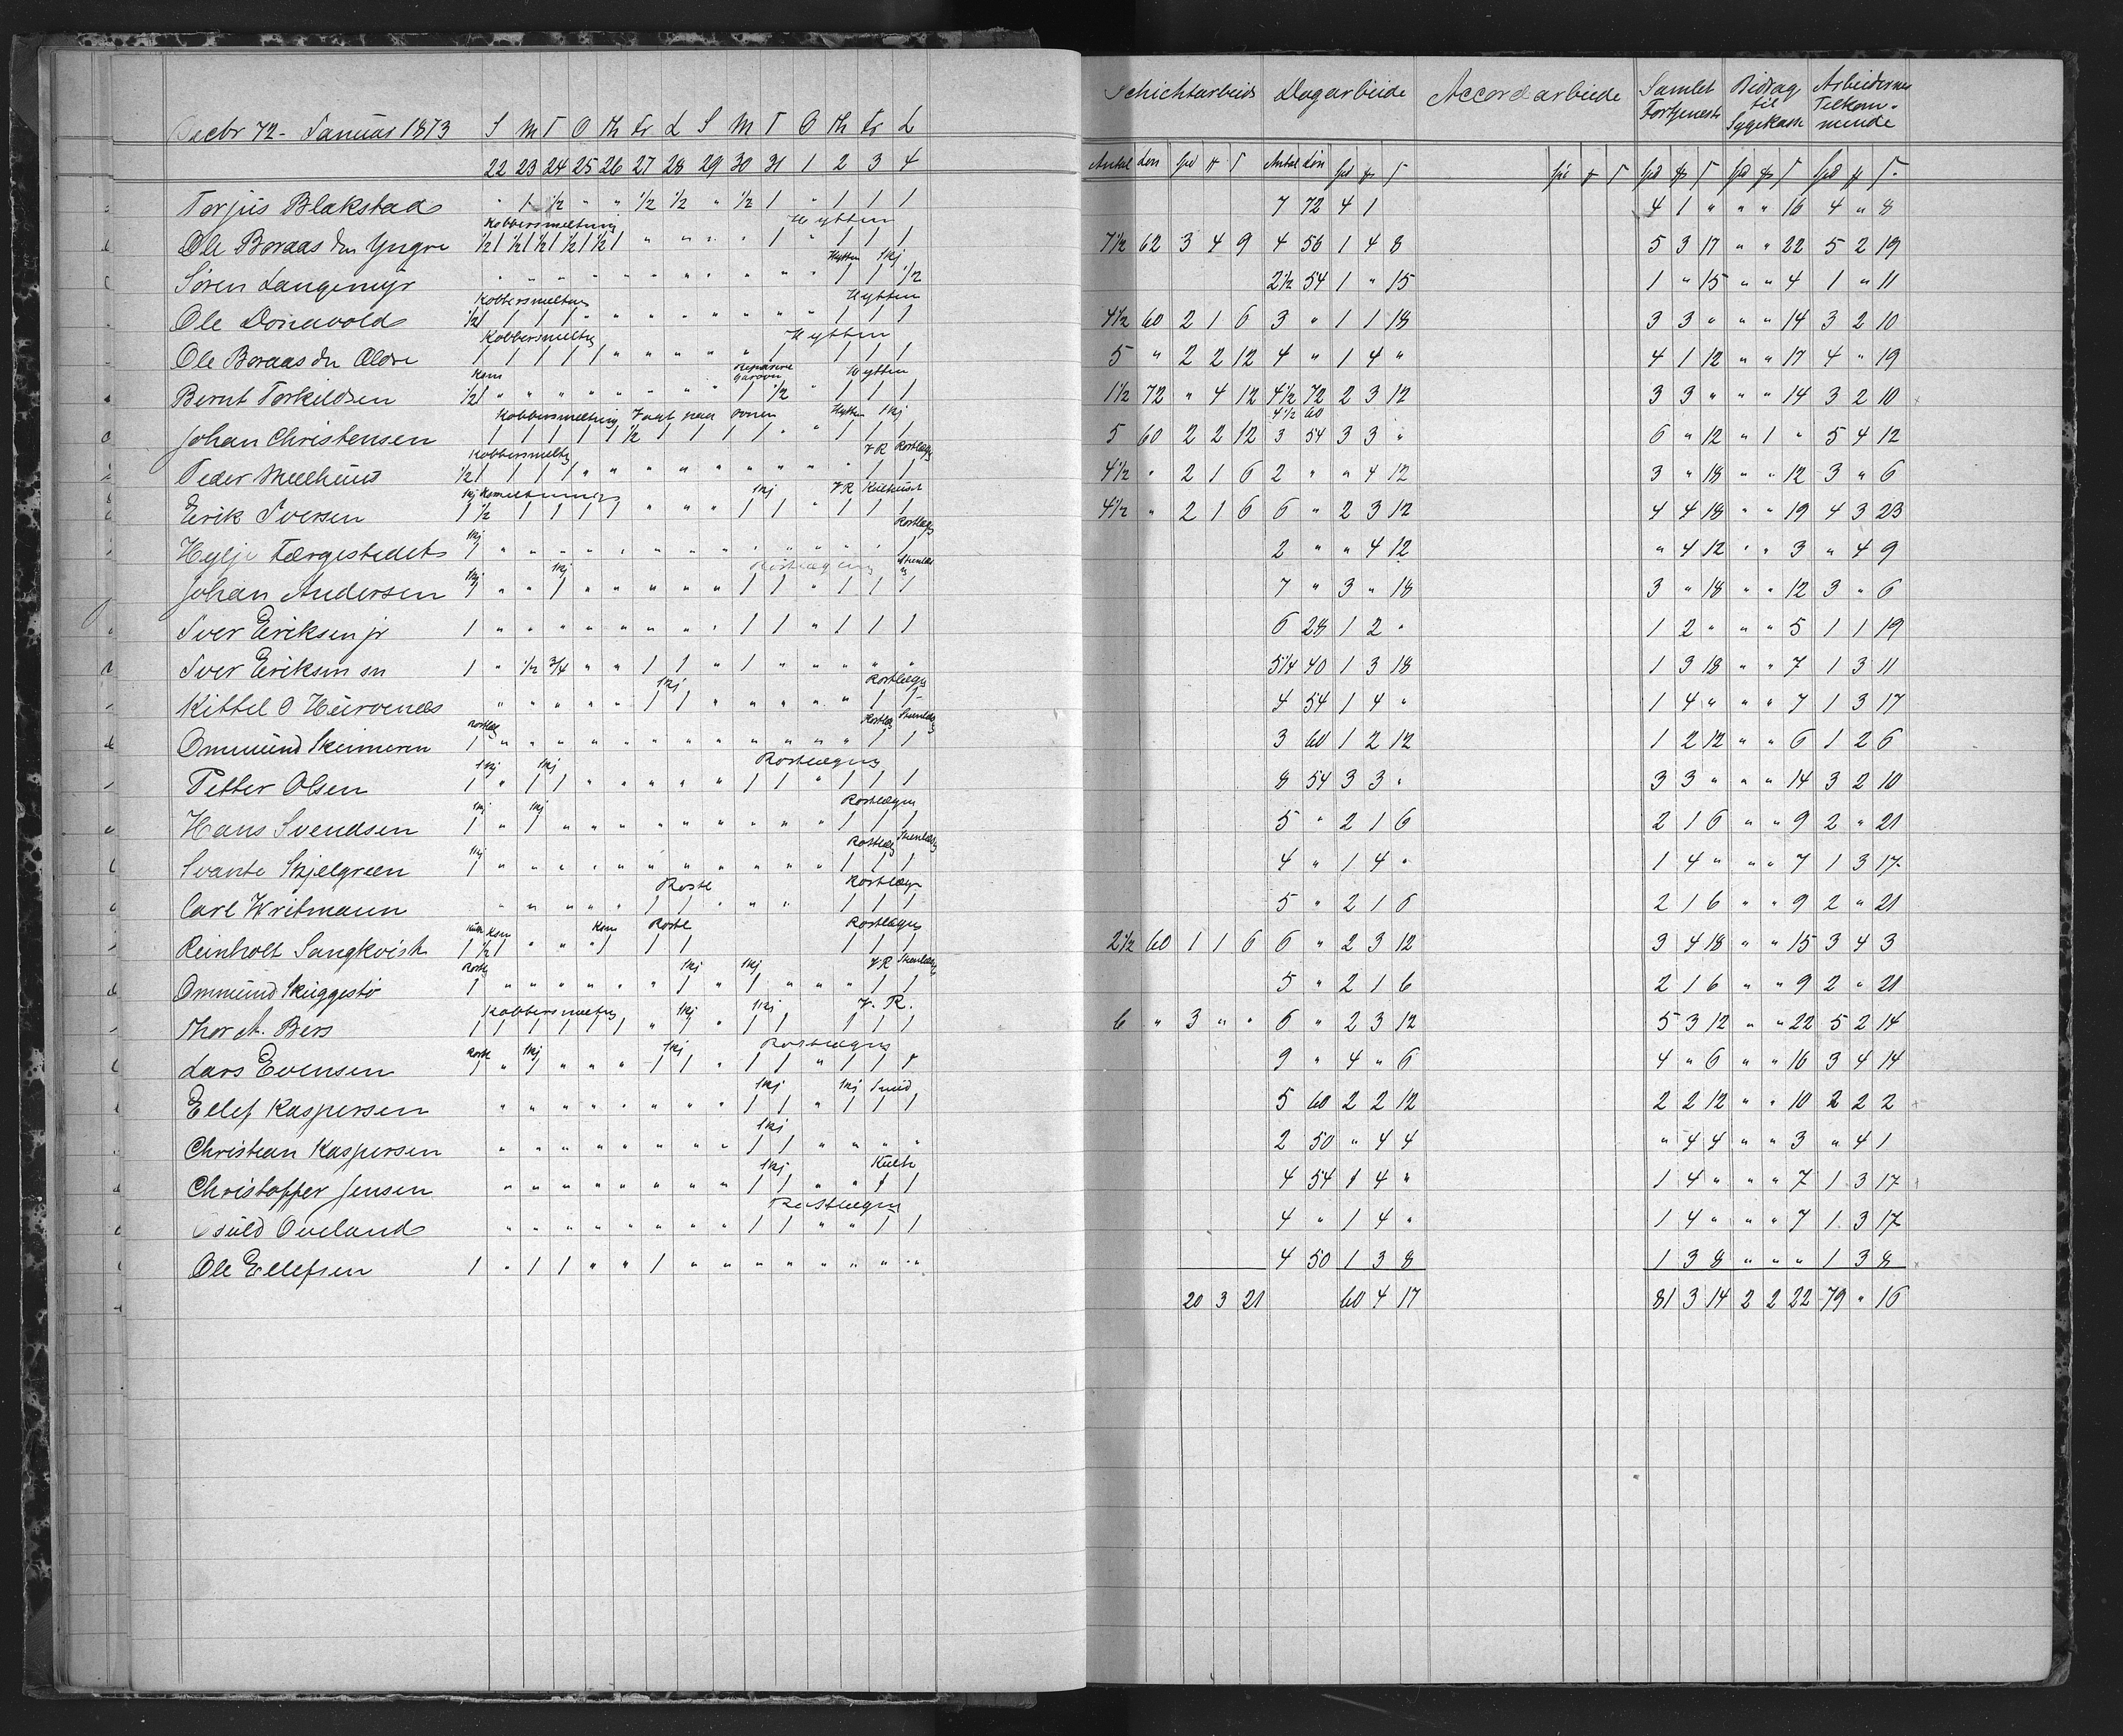 Decbr 72 - Januar 1873 S M T O Th Fr L S M T O Th Fr L
22 23 24 25 26 27 28 29 30 31 1 2 3 4
Schichtarbeide Dagarbeide Accordarbeide Samlet Fortjeneste Bidrag til Sygekasse Arbeidernes Tilkommende
Antal Løn Spd # ſ Antal Løn Spd # ſ Spd # ſ Spd # ſ Spd # ſ Spd # ſ
Torjus Blakstad " 1 1/2 " " 1/2 1/2 " 1/2 1 " 1 1 1 7 72 4 1 4 1 " " " 16 4 " 8
Kobbersmeltning Hytten
Ole Boraas den Yngre 1/2 1 1/2 1 1/2 1 1/2 1 1/2 1 " " " " 1 " 1 1 1 7 1/2 62 3 4 9 4 56 1 4 8 5 3 17 " " 22 5 2 19
Hytten 1kj
Søren Langemyr " " " " " " " " " " " 1 1 1/2 2 1/2 54 1 " 15 1 " 15 " " 4 1 " 11
Kobbersmeltning Hytten
Ole Donavold 1/2 1 1 1 1 " " " " " " " 1 1 1 4 1/2 60 2 1 6 3 " 1 1 18 3 3 " " " 14 3 2 10
Kobbersmeltng Hytten
Ole Boraas den Ældre 1 1 1 1 1 " " " " " 1 1 1 1 5 " 2 2 12 4 " 1 4 " 4 1 12 " " 17 4 " 19
Ksm Reparere Garovn Hytten
Bernt Torkildsen 1/2 1 " " " " " " " " 1 1/2 " 1 1 1 1 1/2 72 " 4 12 4 1/2 72 2 3 12 3 3 " " " 14 3 2 10
Kobbersmeltning Vagt paa ovnen Hytten 1kj
4 1/2 60
Johan Christensen 1 1 1 1 1 1 1/2 1 1 1 1 " " 1 1 1 5 60 2 2 12 3 54 3 3 " 6 " 12 " 1 " 5 4 12
Kobbersmeltg V R Rostlægg
Peder Meelhuus 1/2 1 1 1 1 " " " " " " " " " 1 1 4 1/2 " 2 1 6 2 " " 4 12 3 " 18 " " 12 3 " 6
1kj Ksmeltning 1kj V R Kulhuset
Erik Iversen 1 1/2 1 1 1 1 " " " 1 1 " 1 1 1 4 1/2 " 2 1 6 6 " 2 3 12 4 4 18 " " 19 4 3 23
1kj Rostlægg
Hylje Færgestedet 1 " " " " " " " " " " " " 1 2 " " 4 12 " 4 12 " " 3 " 4 9
1kj 1kj Rostlægning
Johan Andersen 1 " " 1 " " " " " 1 1 " 1 1 1 7 " 3 " 18 3 " 18 " " 12 3 " 6
Iver Eriksen jr 1 " " " " " " " " 1 1 " 1 1 1 6 28 1 2 " 1 2 " " " 5 1 1 19
Iver Eriksen sn 1 " 1/2 3/4 " " 1 1 " 1 " " " " " 5 1/4 40 1 3 18 1 3 18 " " 7 1 3 11
1kj Rostlægg
Kittel O Hurvenes " " " " " 1 1 " " " " " 1 1 4 54 1 4 " 1 4 " " " 7 1 3 17
Rostlæg Rostlæg
Ommund Skimeren 1 " " " " " " " " " " " " 1 1 3 60 1 2 12 1 2 12 " " 6 1 2 6
1kj 1kj Rostlægng
Petter Olsen 1 " 1 1 " " " " " 1 1 " 1 1 1 8 54 3 3 " 3 3 " " " 14 3 2 10
1kj 1kj Rostlægn
Hans Svendsen 1 " 1 " " " " " " " " " 1 1 1 5 " 2 1 6 2 1 6 " " 9 2 " 21
1kj Rostlæg
Svante Skjelgreen 1 " " " " " " " " " " " 1 1 1 4 " 1 4 " 1 4 " " " 7 1 3 17
Rostl Rostlægn
Carl Writmann " " " " " 1 1 " " " 1 1 1 5 " 2 1 6 2 1 6 " " 9 2 " 21
Ksm Ksm Rostl Rostlægn
Reinholt Sangkvist 1 1/2 1 " " " 1 1 1 1 1 1 2 1/2 60 1 1 6 6 " 2 3 12 3 4 18 " " 15 3 4 3
Rostlg 1kj 1kj V R
Ommund Skuggestø 1 " " " " " " 1 " 1 " " " 1 1 5 " 2 1 6 2 1 6 " " 9 2 " 21
Kobbersmeltng 1kj 1kj V. R.
Thor A. Bers 1 1 1 1 1 1 " 1 " 1 1 1 1 1 6 " 3 " " 6 " 2 3 12 5 3 12 " " 22 5 2 14
Rostl 1kj 1kj Rostlægng
Lars Evensen 1 " 1 " " " 1 1 " 1 1 " 1 1 1 9 " 4 " 6 4 " 6 " " 16 3 4 14
1kj 1kj Smid
Ellef Kaspersen " " " " " " " " 1 1 " 1 1 1 5 60 2 2 12 2 2 12 " " 10 2 2 2
1kj
Christian Kaspersen " " " " " " " " 1 1 " " " " 2 50 " 4 4 " 4 4 " " 3 " 4 1
1kj Kulh
Christoffer Jensen " " " " " " " " 1 1 " " 1 1 4 54 1 4 " 1 4 " " " 7 1 3 17
Rostlægn
Osuld Oveland " " " " " " " " 1 1 " " 1 1 4 " 1 4 " 1 4 " " " 7 1 3 17
Ole Ellefsen 1 " 1 1 " " 1 " " " " " " " " 4 50 1 3 8 1 3 8 " " " 1 3 8
20 3 21 60 4 17 81 3 14 2 2 22 79 " 16